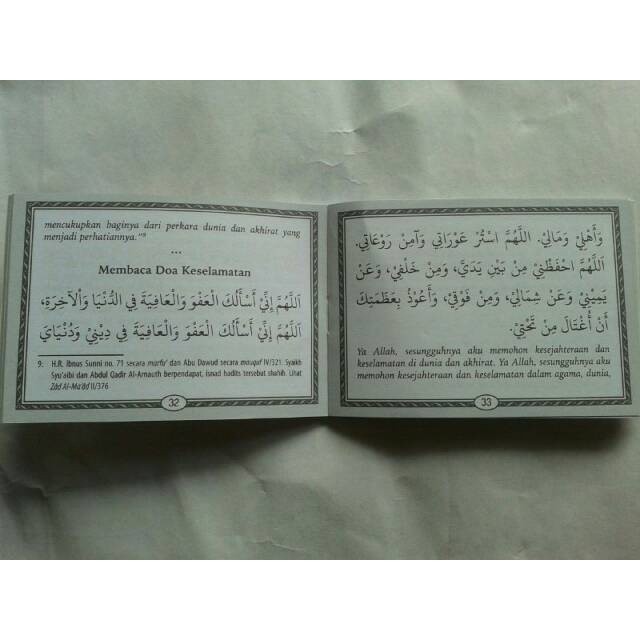 mencukupkan baginya dari perkara dunia dan akhirat yang
menjadi perhatiannya."⁹
...
Membaca Doa Keselamatan
اَللَّهُمَّ إِنِّي أَسْأَلُكَ الْعَفْوَ وَالْعَافِيَةَ فِي الدُّنْيَا وَاْلآخِرَةِ،
اَللَّهُمَّ إِنِّي أَسْأَلُكَ الْعَفْوَ وَالْعَافِيَةَ فِي دِيْنِيْ وَدُنْيَايَ
9. H.R. Ibnus Sunni no. 71 secara marfu' dan Abu Dawud secara mauquf IV/321. Syaikh
Syu'aibi dan Abdul Qadir Al-Arnauth berpendapat, isnad hadits tersebut shahih. Lihat
Zâd Al-Ma'âd II/376
32
وَأَهْلِيْ وَمَالِيْ. اللَّهُمَّ اسْتُرْ عَوْرَاتِي وَآمِنْ رَوْعَاتِي.
اَللَّهُمَّ احْفَظْنِيْ مِنْ بَيْنِ يَدَيَّ، وَمِنْ خَلْفِيْ، وَعَنْ
يَمِيْنِيْ وَعَنْ شِمَالِيْ، وَمِنْ فَوْقِيْ، وَأَعُوْذُ بِعَظَمَتِكَ
أَنْ أُغْتَالَ مِنْ تَحْتِيْ.
Ya Allah, sesungguhnya aku memohon kesejahteraan dan
keselamatan di dunia dan akhirat. Ya Allah, sesungguhnya aku
memohon kesejahteraan dan keselamatan dalam agama, dunia,
33